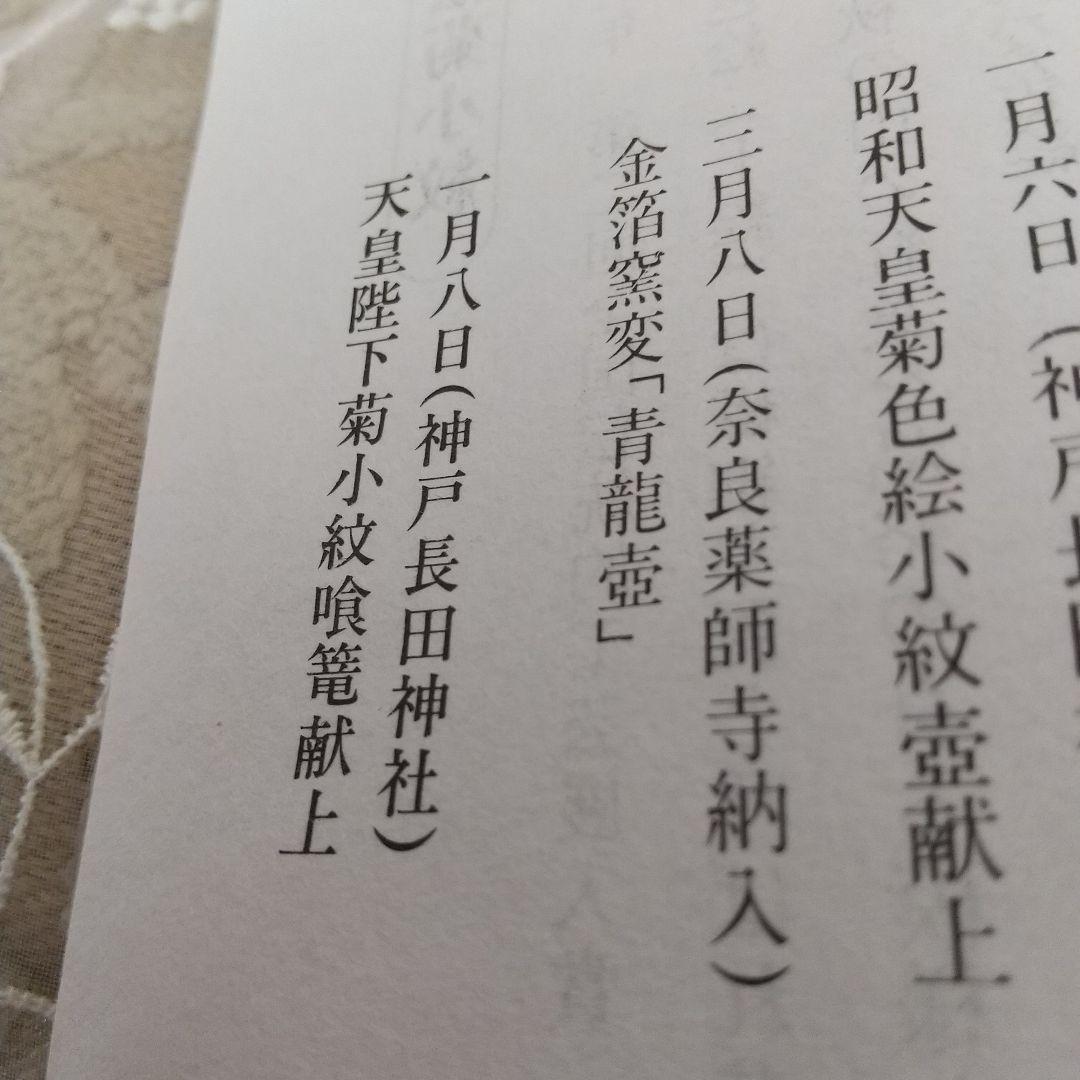 一月六日(神戸長田
昭和天皇菊色絵小紋壺献上
三月八日(奈良薬師寺納入)
金箔窯変「青龍壺」
一月八日(神戸長田神社)
天皇陛下菊小紋喰篭献上